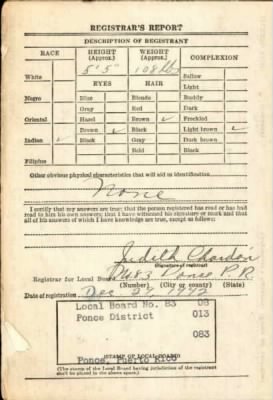 REGISTRAR'S REPORT
DESCRIPTION OF REGISTRANT
RACE HEIGHT (Approx.) WEIGHT (Approx.) COMPLEXION
5' 5" 108 lbs
White Sallow
EYES HAIR Light
Negro Blue Blonde Ruddy
Gray Red Dark
Oriental Hazel Brown ✓ Freckled
Brown ✓ Black Light brown ✓
Indian ✓ Black Gray Dark brown
Bald Black
Filipino
Other obvious physical characteristics that will aid in identification
None
I certify that my answers are true; that the person registered has read or has had
read to him his own answers; that I have witnessed his signature or mark and that
all of his answers of which I have knowledge are true, except as follows:
Judith Chardón
Signature of registrar
Registrar for Local Board 83 Ponce P.R.
(Number) (City or county) (State)
Date of registration Dec 1942
Local Board No. 83 08
Ponce District 013
083
Ponce, Puerto Rico
(STAMP OF LOCAL BOARD)
(The stamp of the Local Board having jurisdiction of the registrant
shall be placed in the above space.)